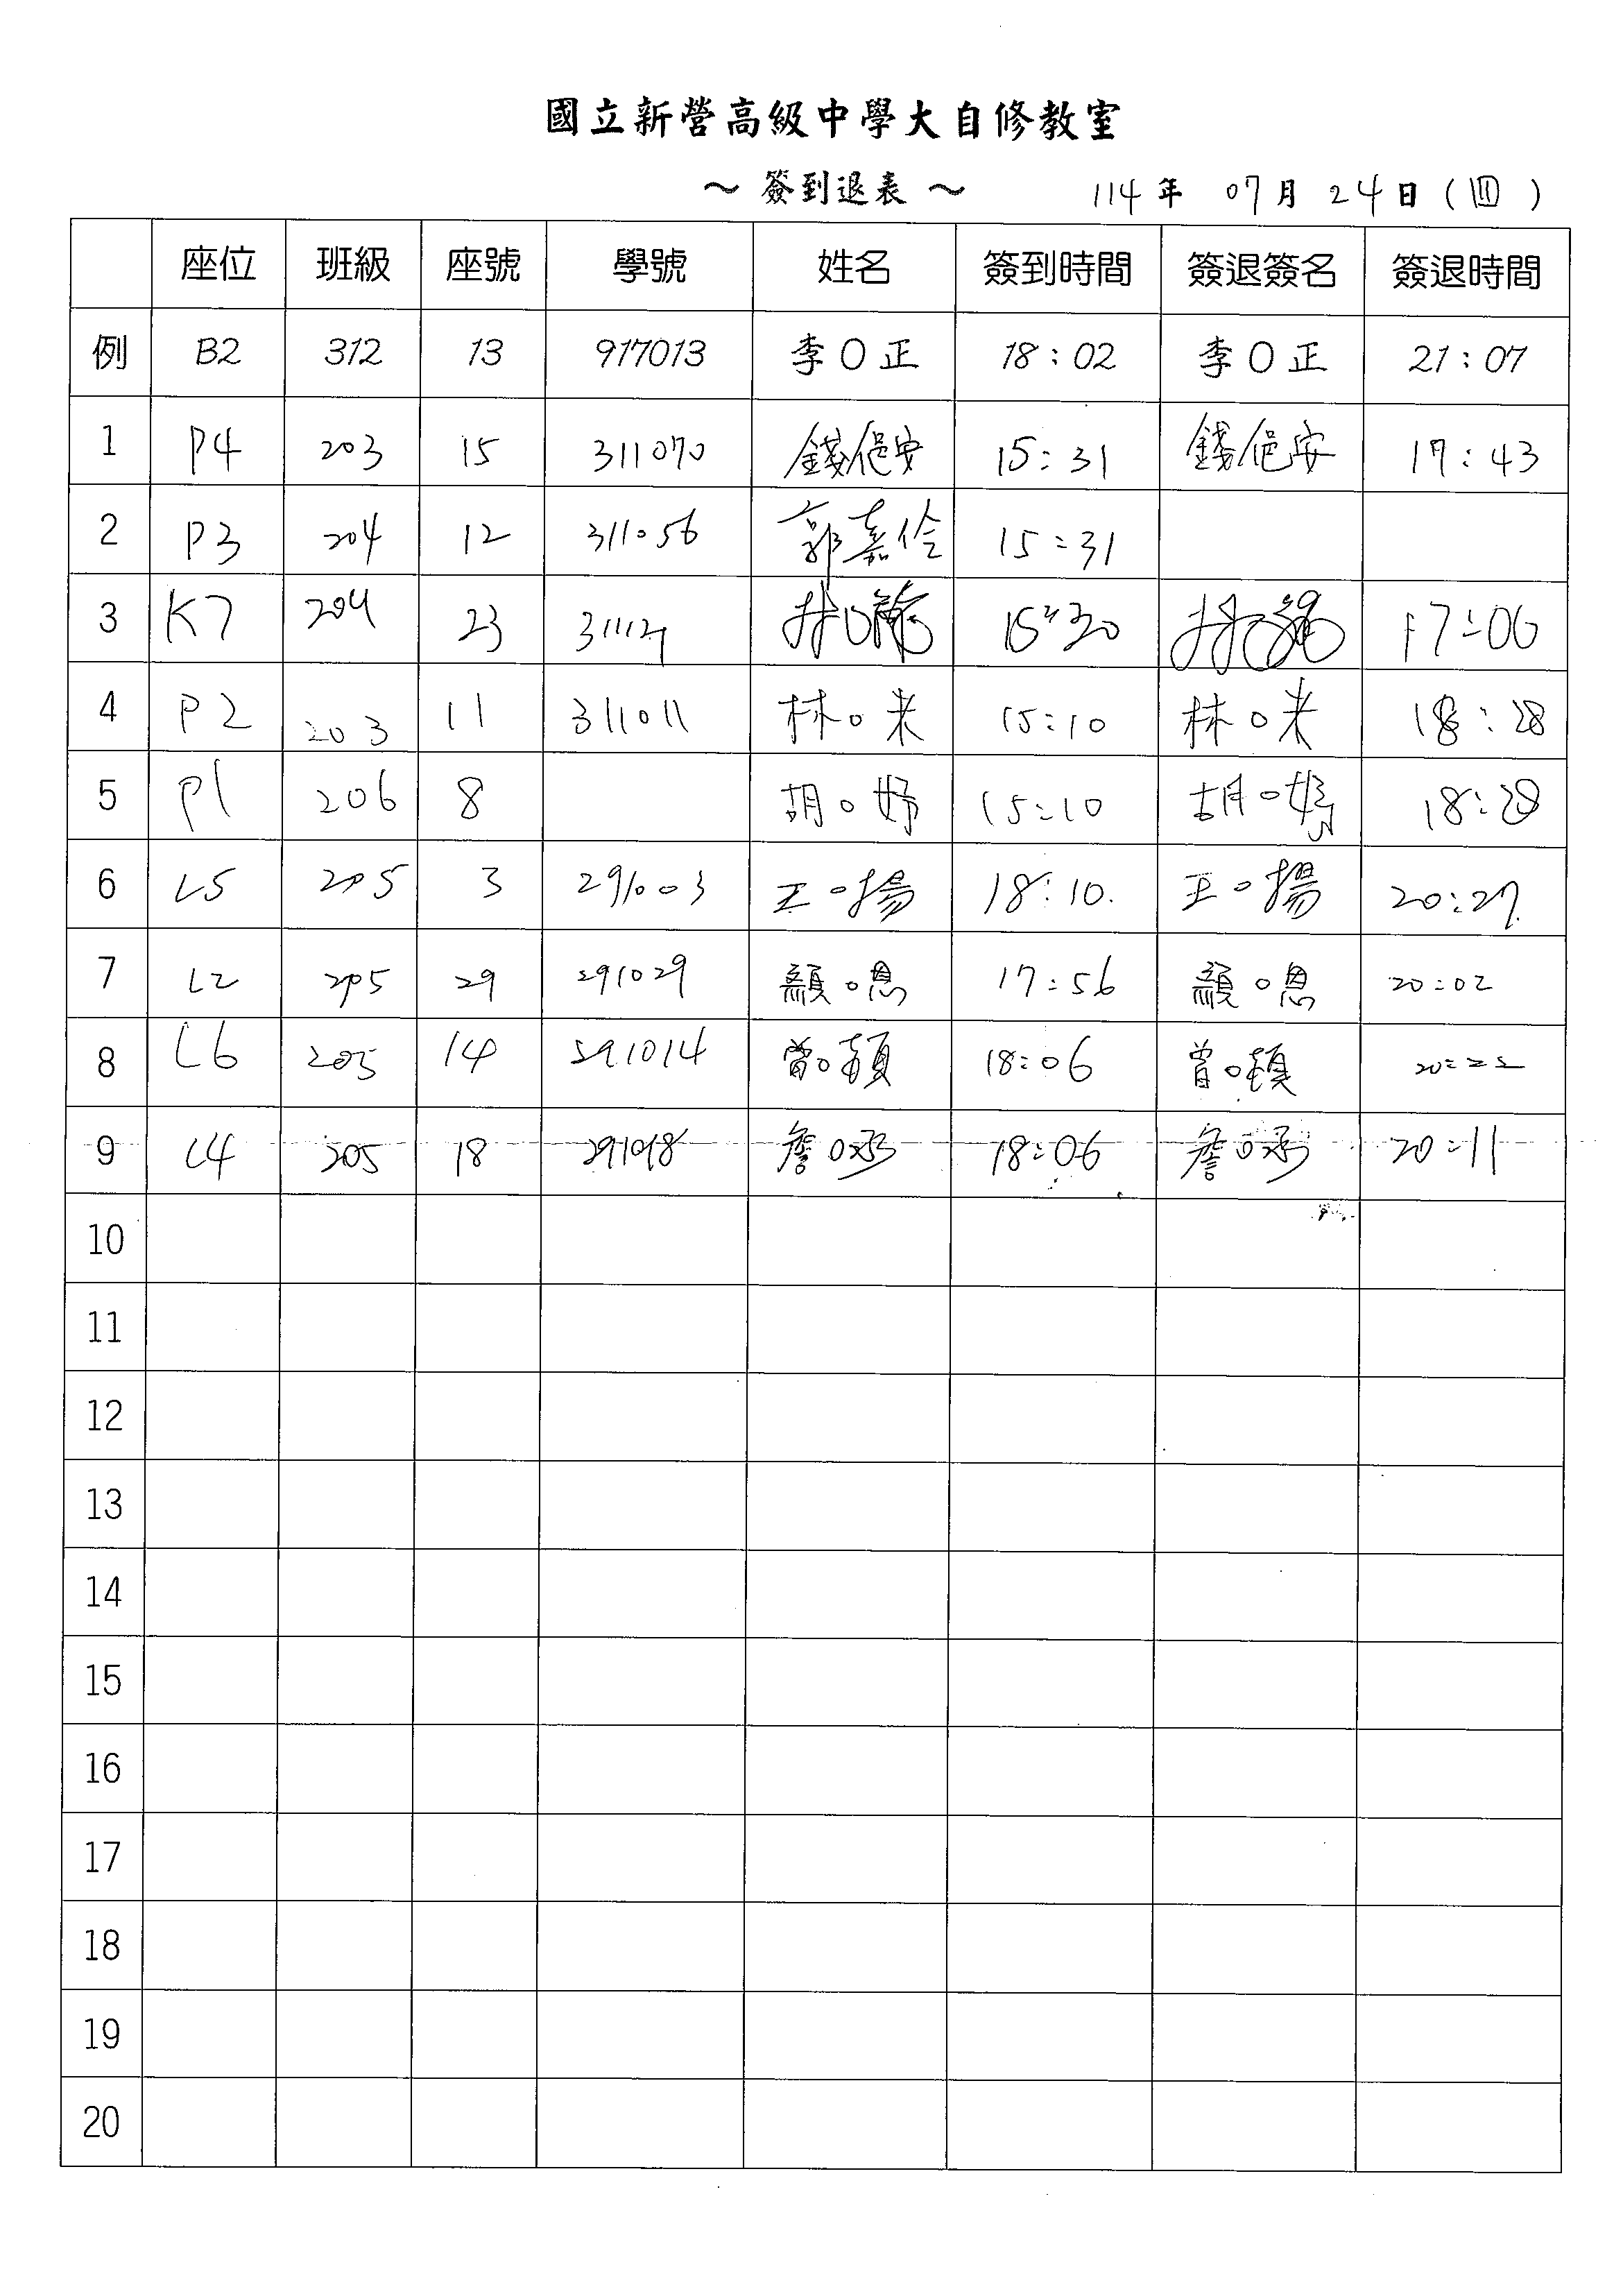 國立新營高級中學大自修教室
～ 簽到退表 ～ 114年 07月 24日(四)
座位 班級 座號 學號 姓名 簽到時間 簽退簽名 簽退時間
例 B2 312 13 917013 李O正 18:02 李O正 21:07
1 P4 203 15 311070 錢俋安 15:31 錢俋安 17:43
2 P3 204 12 311056 郭嘉伶 15:31
3 K7 204 23 15:30 17:06
4 P2 203 11 311011 林O米 15:10 林O米 18:28
5 P1 206 8 胡O妤 15:10 胡O 18:28
6 L5 205 3 291003 王O揚 18:10. 王O揚 20:27.
7 L2 205 29 291029 顏O恩 17:56 顏O恩 20:02
8 L6 205 14 291014 曾O 18:06 曾O 20:22
9 L4 205 18 291018 詹O丞 18:06 詹O丞 20:11
10
11
12
13
14
15
16
17
18
19
20